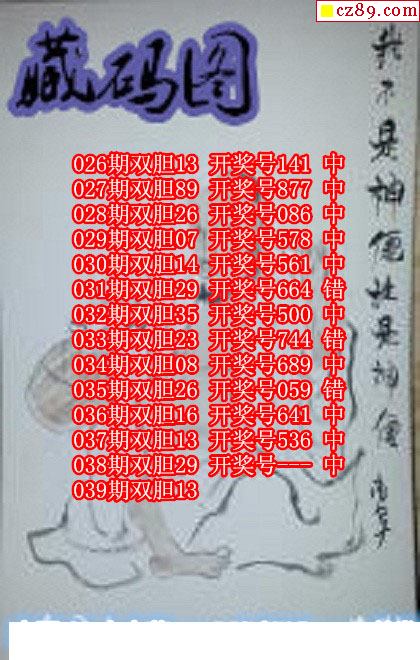 cz89.com
藏码图
026期双胆13 开奖号141 中
027期双胆89 开奖号877 中
028期双胆26 开奖号086 中
029期双胆07 开奖号578 中
030期双胆14 开奖号561 中
031期双胆29 开奖号664 错
032期双胆35 开奖号500 中
033期双胆23 开奖号744 错
034期双胆08 开奖号689 中
035期双胆26 开奖号059 错
036期双胆16 开奖号641 中
037期双胆13 开奖号536 中
038期双胆29 开奖号--- 中
039期双胆13
我不是神仙社是神仙